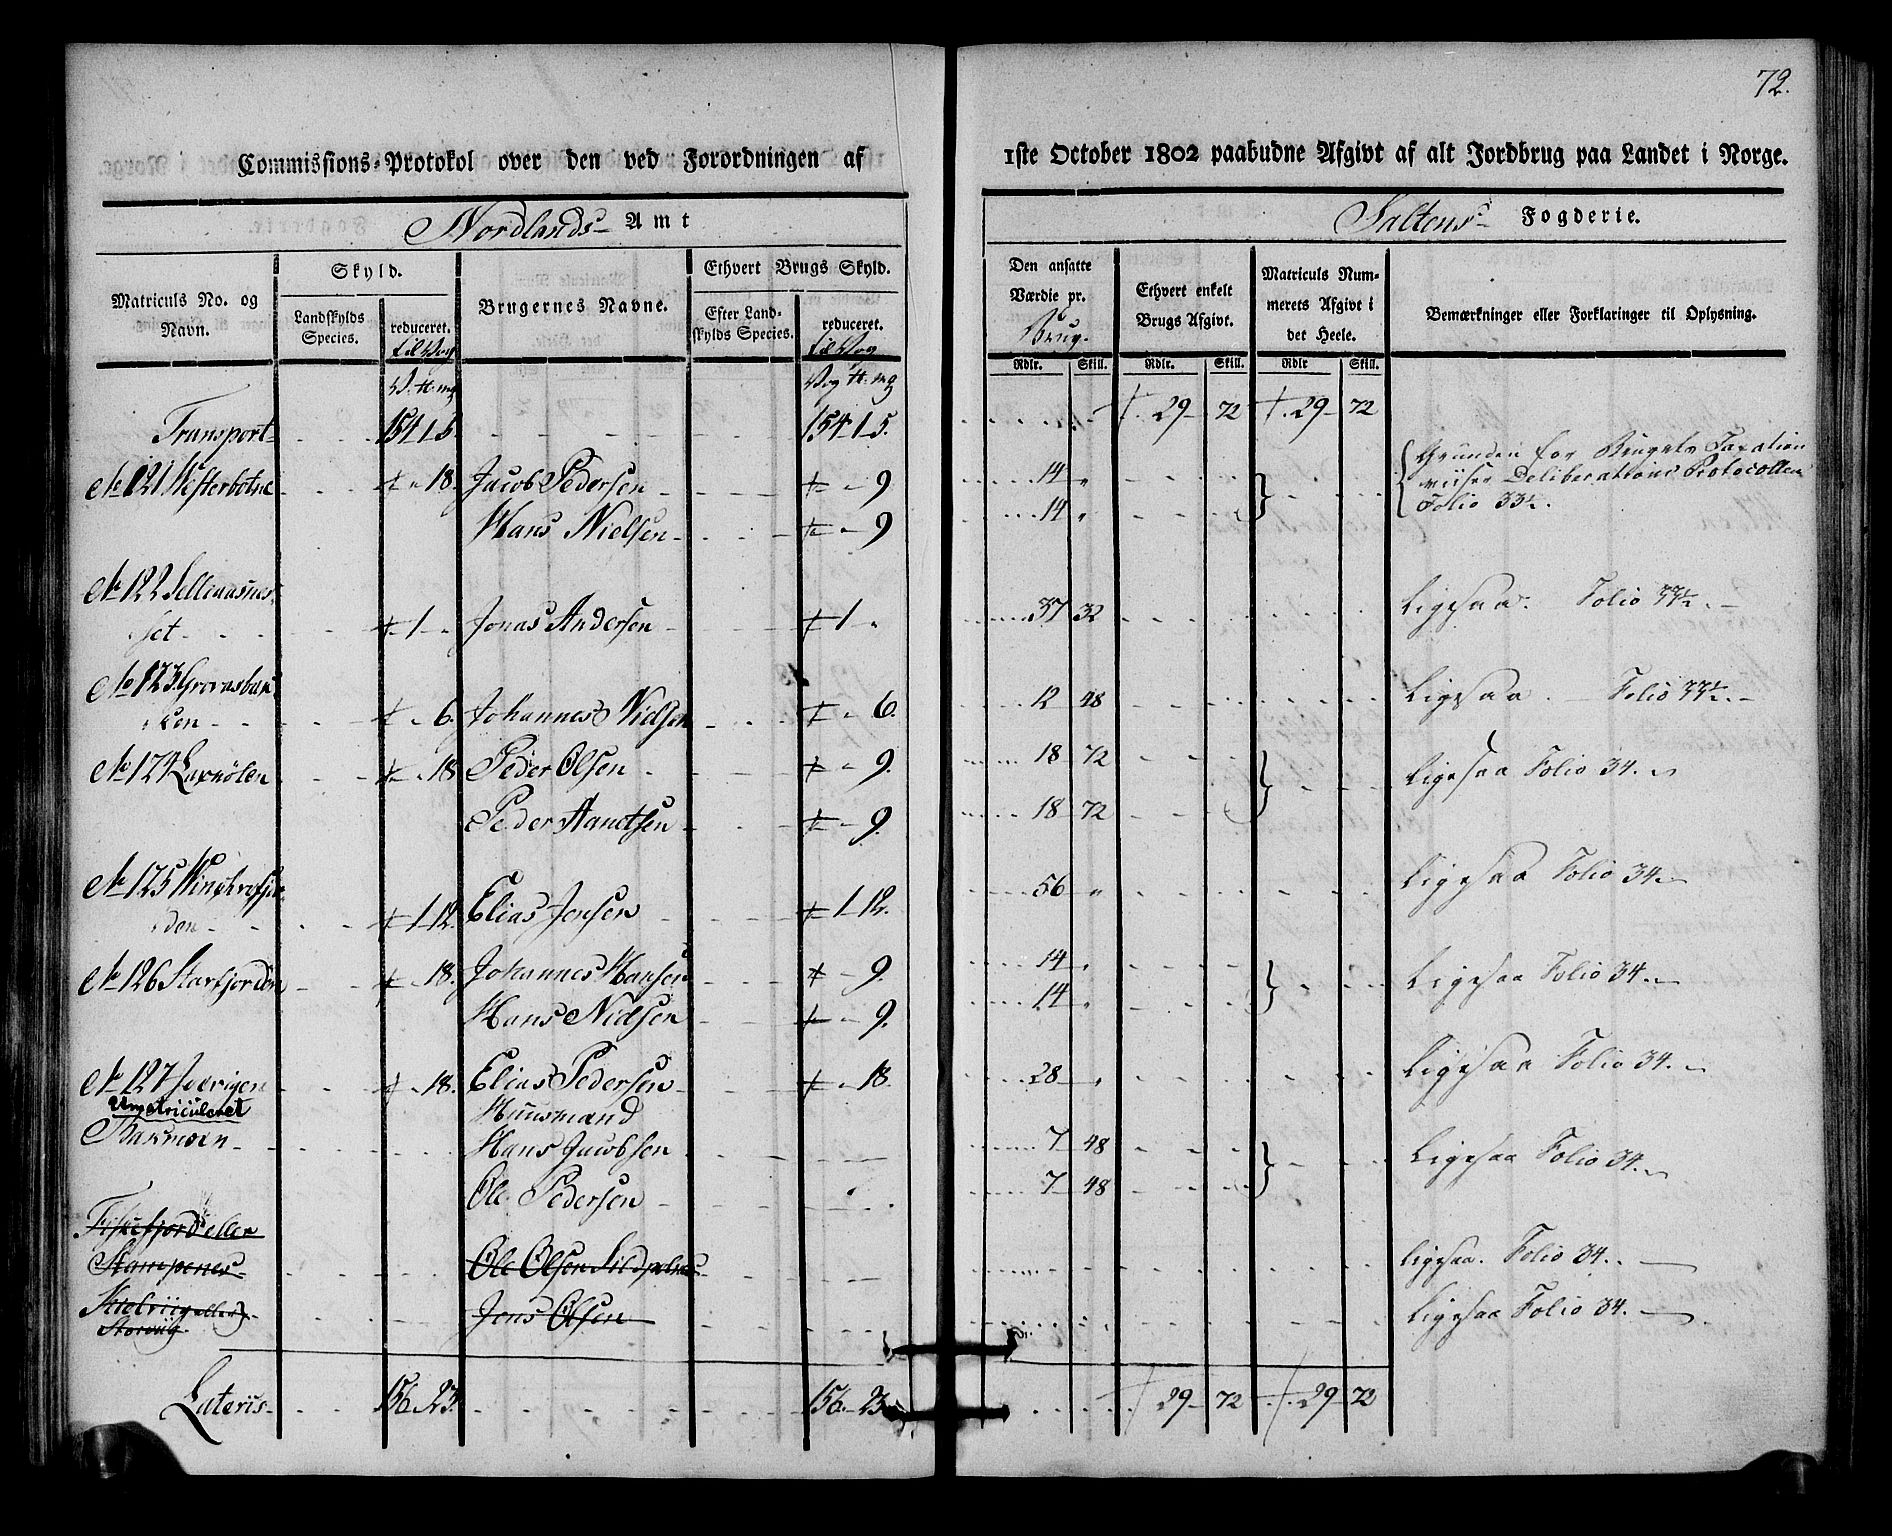 72.
Commissions-Protokol over den ved Forordningen af 1ste October 1802 paabudne Afgivt af alt Jordbrug paa Landet i Norge.
Nordlands Amt
Saltens Fogderie.
Matriculs No. og Navn.
Skyld.
Landskylds Species.
reduceret. til Vog
Brugernes Navne.
Ethvert Brugs Skyld.
Efter Landskylds Species.
reduceret. til Vog
Den ansatte Værdie pr. Brug.
Ethvert enkelt Brugs Afgivt.
Matriculs Nummerets Afgivt i det Heele.
Bemærkninger eller Forklaringer til Oplysning.
Rdlr. Skill. Rdlr. Skill. Rdlr Skill.
Transport 154 1 5 154 1 5. 29 72 29 72
No 121 Westerbotne 18. Jacob Pedersen 9 14 Grunden for Brugets Taxation
viiser Deliberations Protocollen
Folio 33½.
Hans Nielsen 9 14
No 122
set 1 Jonas Andersen 1 37 32 Ligesaa Folio 33½.
No 123
ken 6. Johannes Nielsen 6. 12 48 Ligesaa Folio 33½.
No 124 18 Peder Olsen 9. 18 72 Ligesaa Folio 34.
Peder 9. 18 72
No 125
den 1 12. Elias Jensen 1 12. 56 Ligesaa Folio 34.
No 126 Storfjorden 18. Johannes Hansen 9. 14 Ligesaa Folio 34.
Hans Nielsen 9. 14
No 127 18. Elias Pedersen 18. 28 Ligesaa Folio 34.
Umatriculeret Huusmænd
Hans Jacobsen 7 48 Ligesaa Folio 34.
Ole Pedersen 7 48
Fiskefjord eller
Stampenes Ole Olsen Ligesaa. Folio 34.
eller Jens Olsen Ligesaa Folio 34.
Storviig
Lateris 156 23. 156 23 29 72 29 72